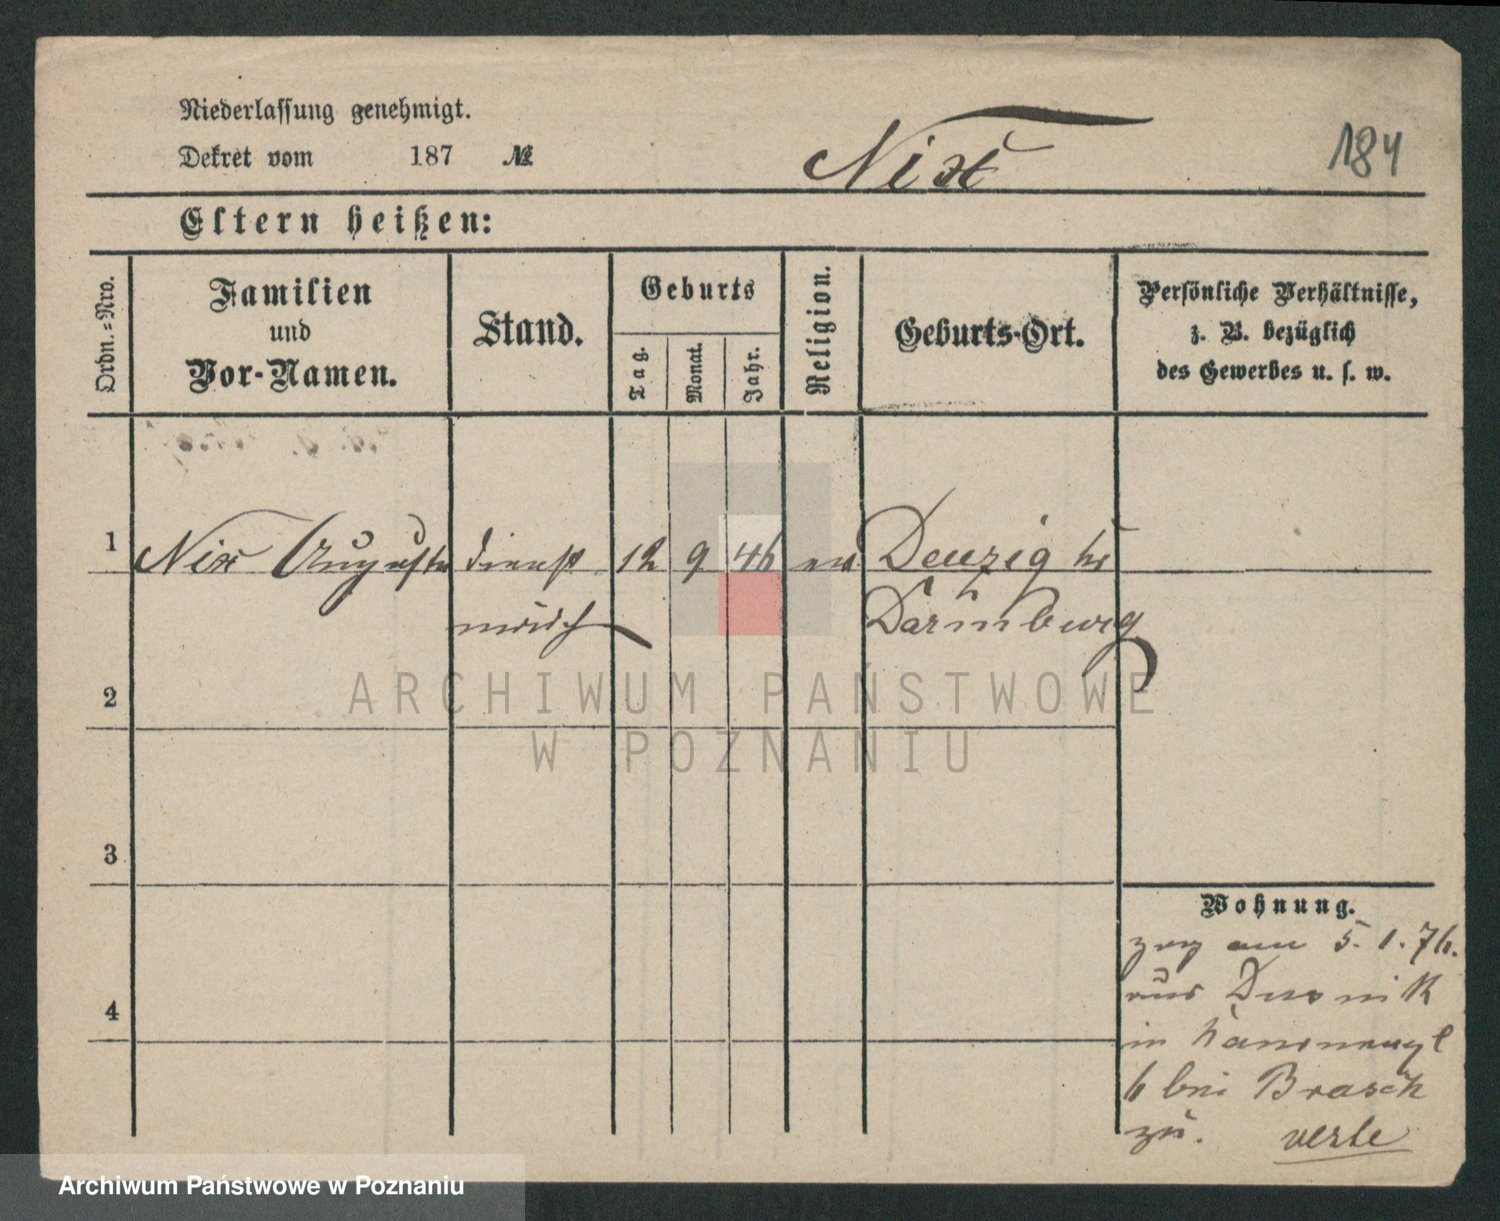 Niederlassung genehmigt.
Dekret vom 187 №
Nix
184
Eltern heißen:
Ordn.=Nro.
Familien
und
Vor-Namen.
Stand.
Geburts
Tag.
Monat.
Jahr.
Religion.
Geburts-Ort.
Persönliche Verhältnisse,
z. B. bezüglich
des Gewerbes u. s. w.
1 Nix Auguste dienst 12 9 46 ev Denzig
mäd
2
3
4
Wohnung.
zog am 5. 1. 76.
aus Dusnik
in
6 bei Brasch
zu.
ARCHIWUM PAŃSTWOWE
W POZNANIU
Archiwum Państwowe w Poznaniu